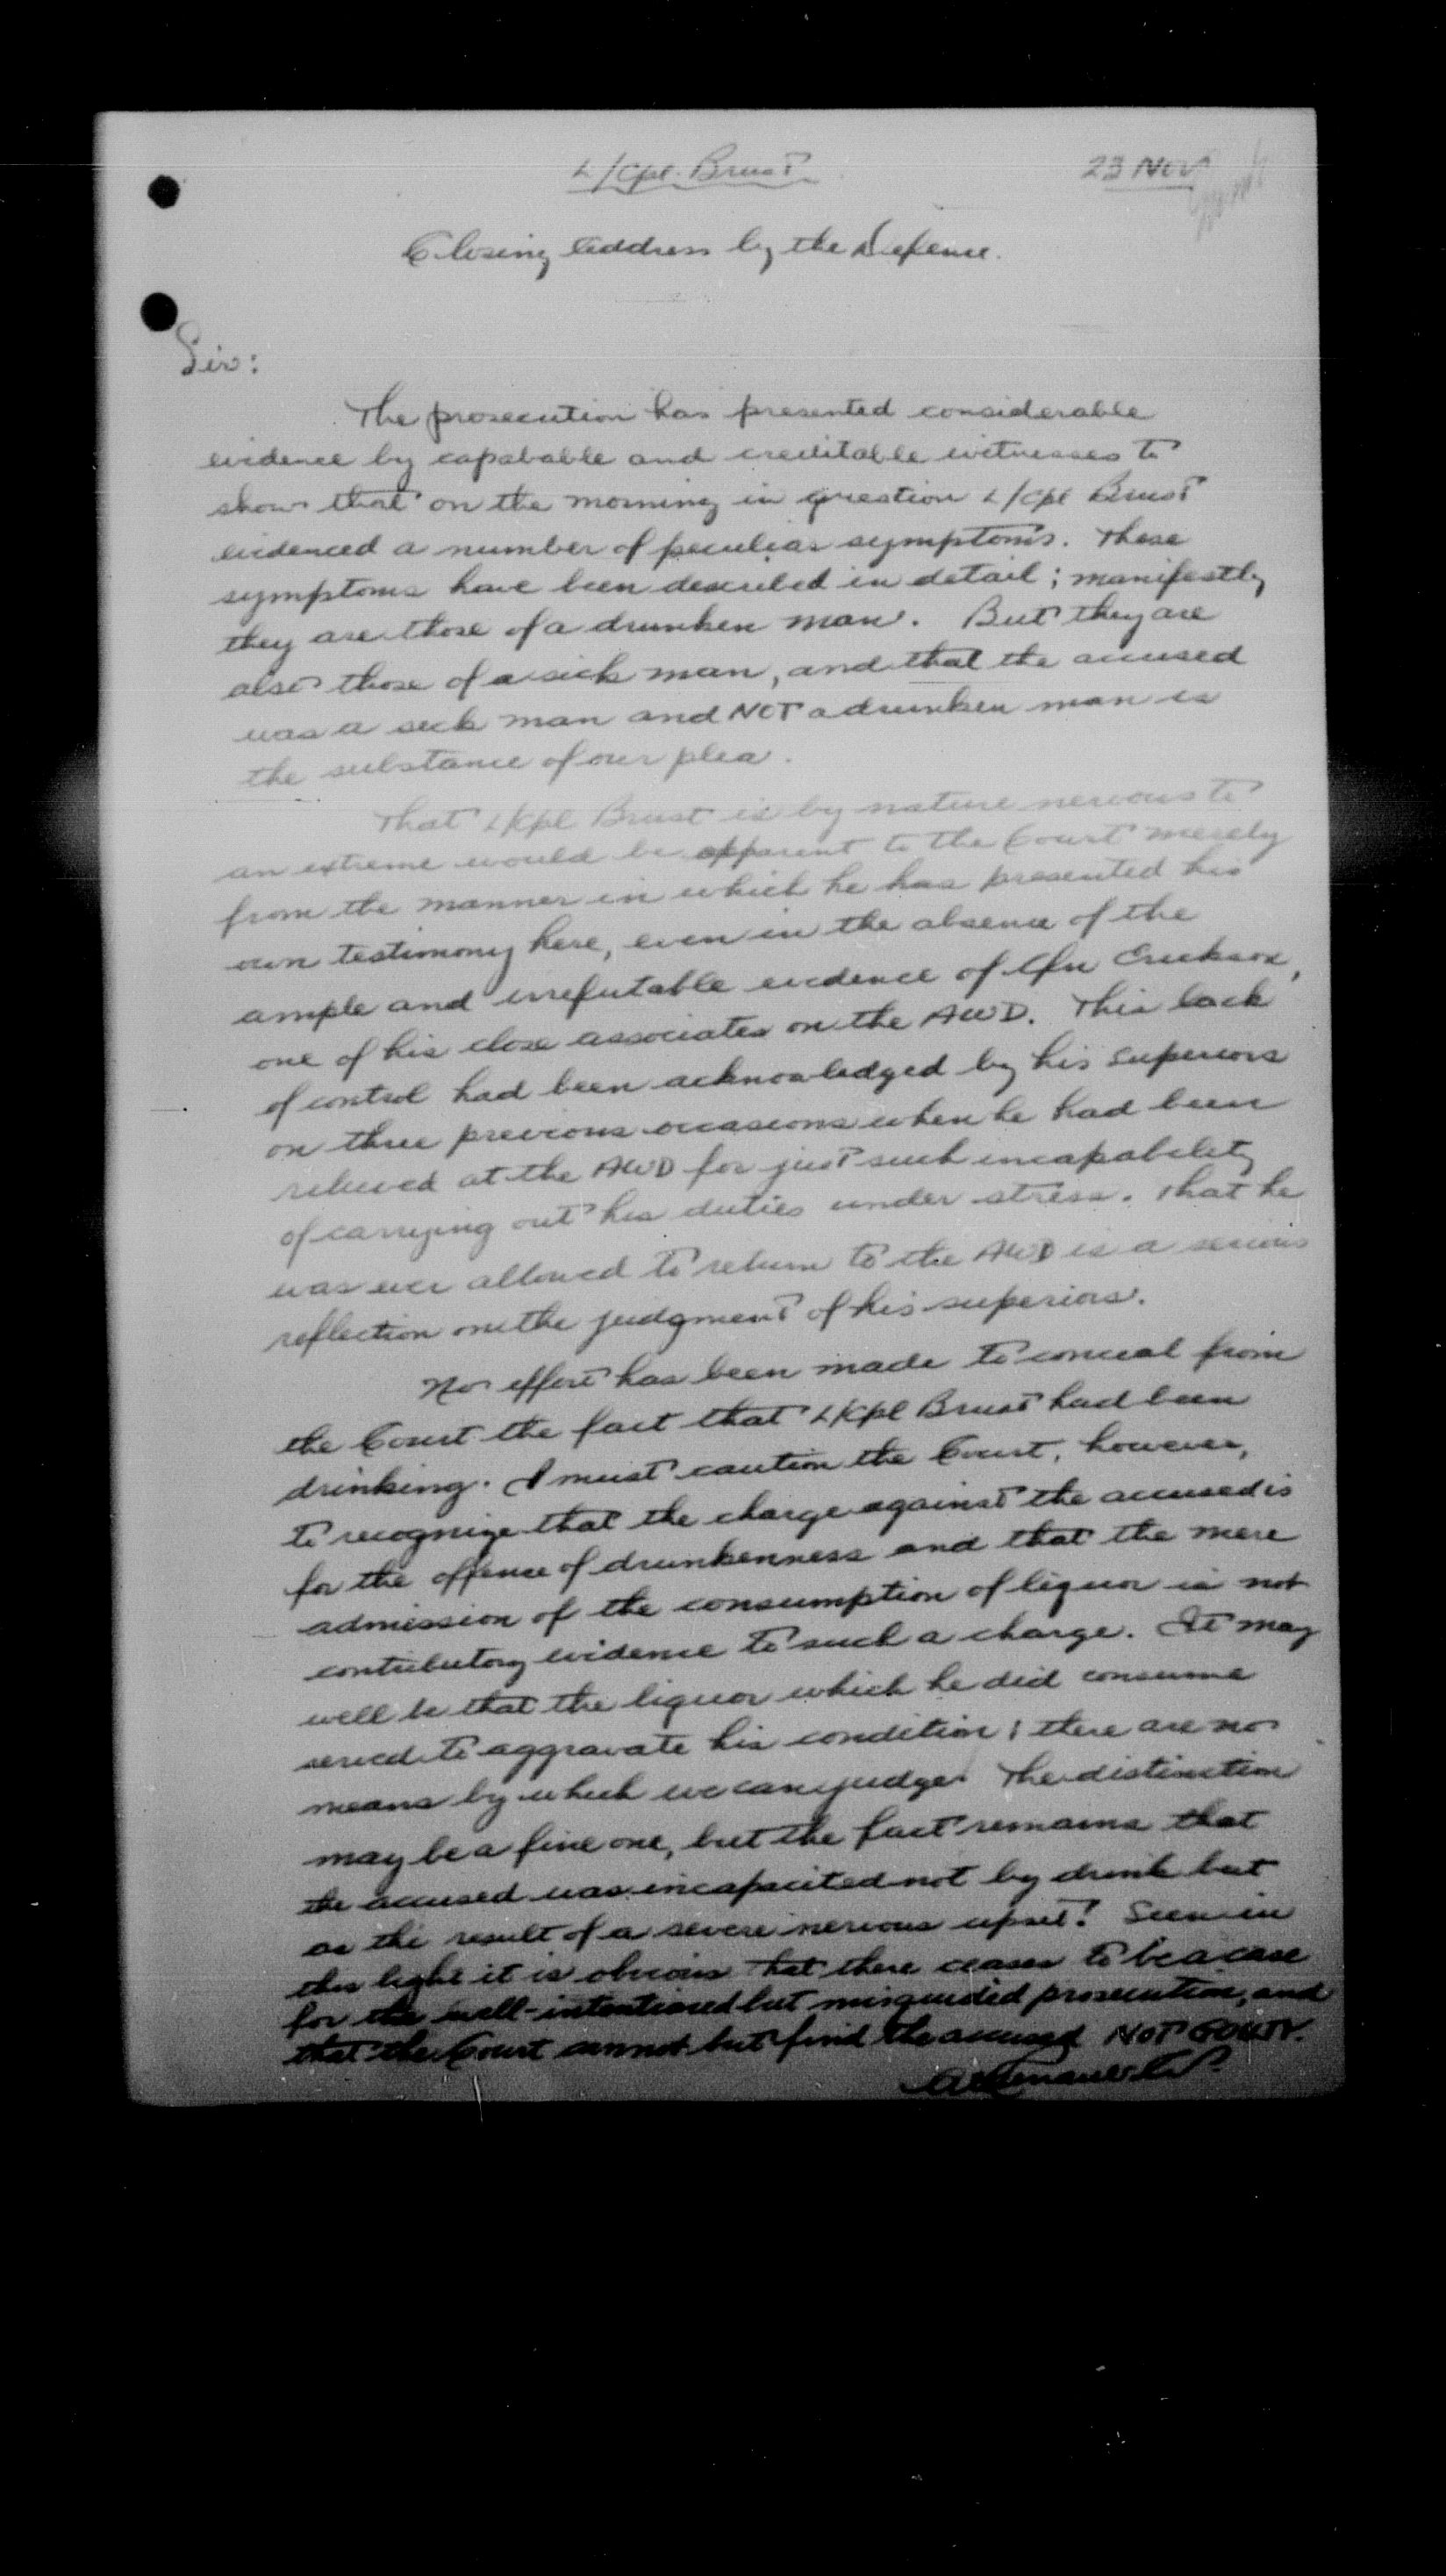 L/Cpl. Brust
23 Nov
Closing Address by the Defence.
Sir:
The prosecution has presented considerable
evidence by capabable and creditable witnesses to
show that on the morning in question L/Cpl Brust
evidenced a number of peculiar symptoms. These
symptoms have been described in detail; manifestly
they are those of a drunken man. But they are
also those of a sick man, and that the accused
was a sick man and NOT a drunken man is
the substance of our plea.
That L/Cpl Brust is by nature nervous to
an extreme would be apparent to the Court merely
from the manner in which he has presented his
own testimony here, even in the absence of the
ample and irrefutable evidence of Cfn Erickson,
one of his close associates on the AWD. This lack
of control had been acknowledged by his superiors
on three previous occasions when he had been
relieved at the AWD for just such incapability
of carrying out his duties under stress. That he
was ever allowed to return to the AWD is a serious
reflection on the judgment of his superiors.
No effort has been made to conceal from
the Court the fact that L/Cpl Brust had been
drinking. I must caution the Court, however,
to recognize that the charge against the accused is
for the offence of drunkenness and that the mere
admission of the consumption of liquor is not
contributory evidence to such a charge. It may
well be that the liquor which he did consume
served to aggravate his condition; there are no
means by which we can judge. The distinction
may be a fine one, but the fact remains that
the accused was incapacited not by drink but
as the result of a severe nervous upset! Seen in
this light it is obvious that there ceases to be a case
for the well-intentioned but misguided prosecution, and
that the Court cannot but find the accused NOT GUILTY.